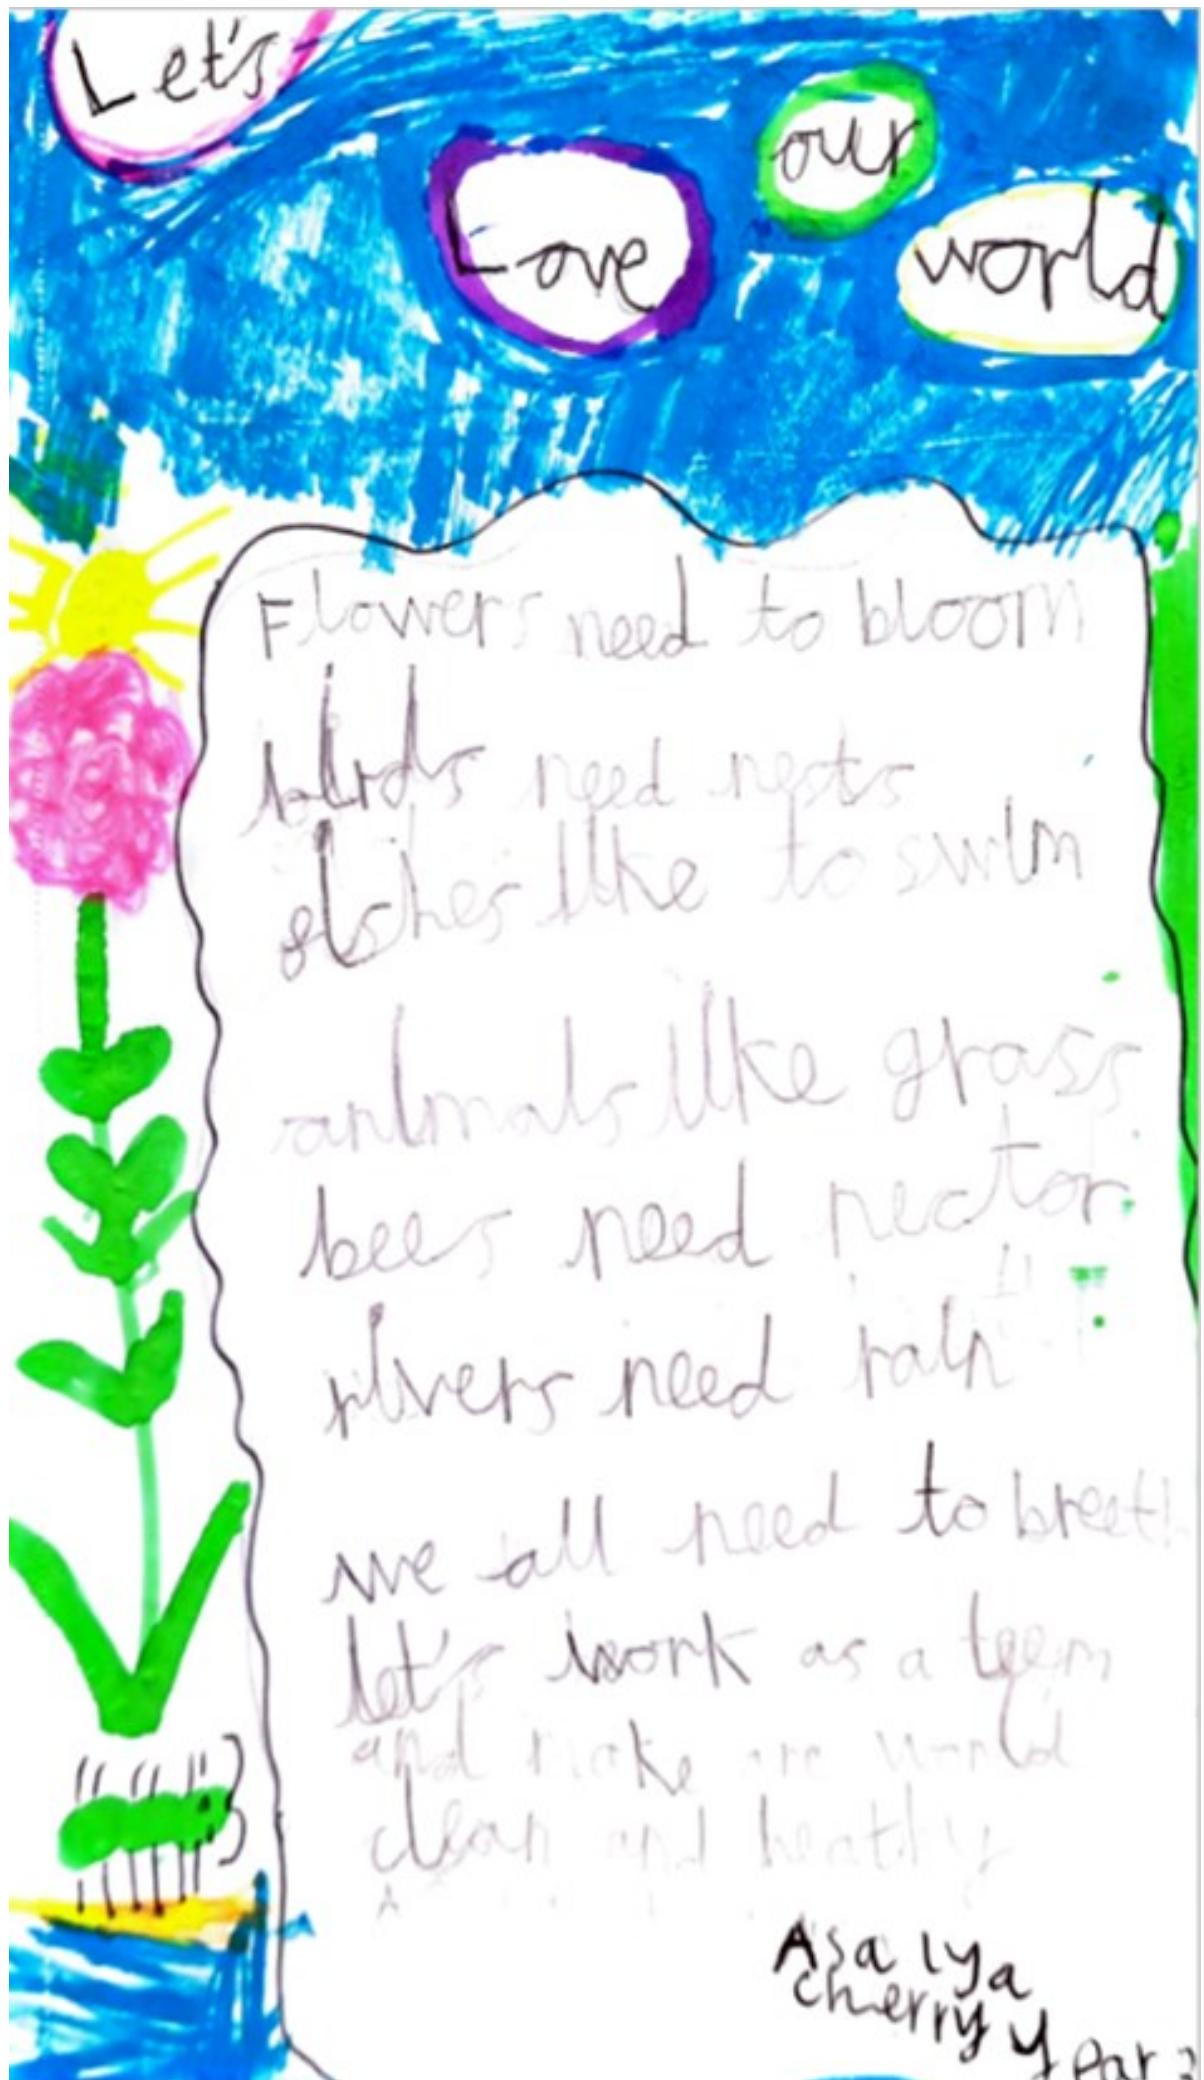 Let's
Love
our
world
Flowers need to bloom
birds need nests
fishes like to swim
animals like grass
bees need nector
rivers need rain
we all need to breeth
let's work as a teem
and make are world
clean and heathy
Asalya
Cherry Year